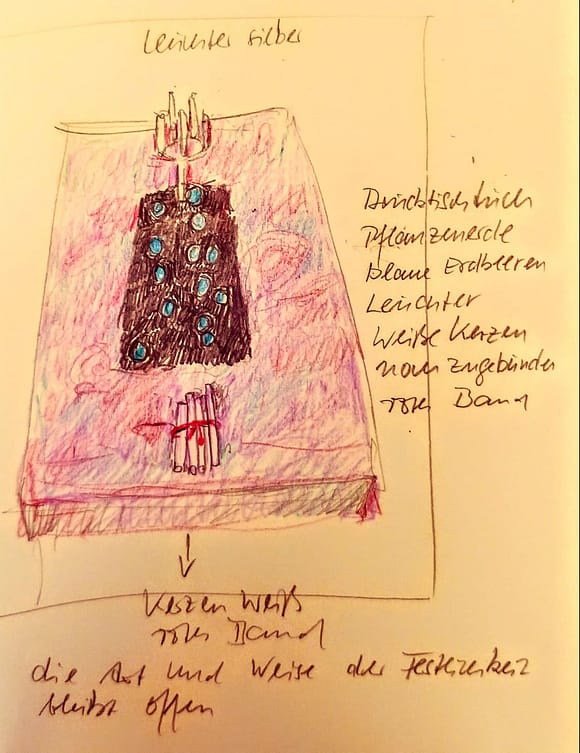 Leuchter silber
Drucktischtuch
Pflanzenerde
blaue Erdbeeren
Leuchter
weiße Kerzen
noch zugebunden
rotes Band
Kerzen weiß
rotes Band
die Art und Weise der
bleibt offen